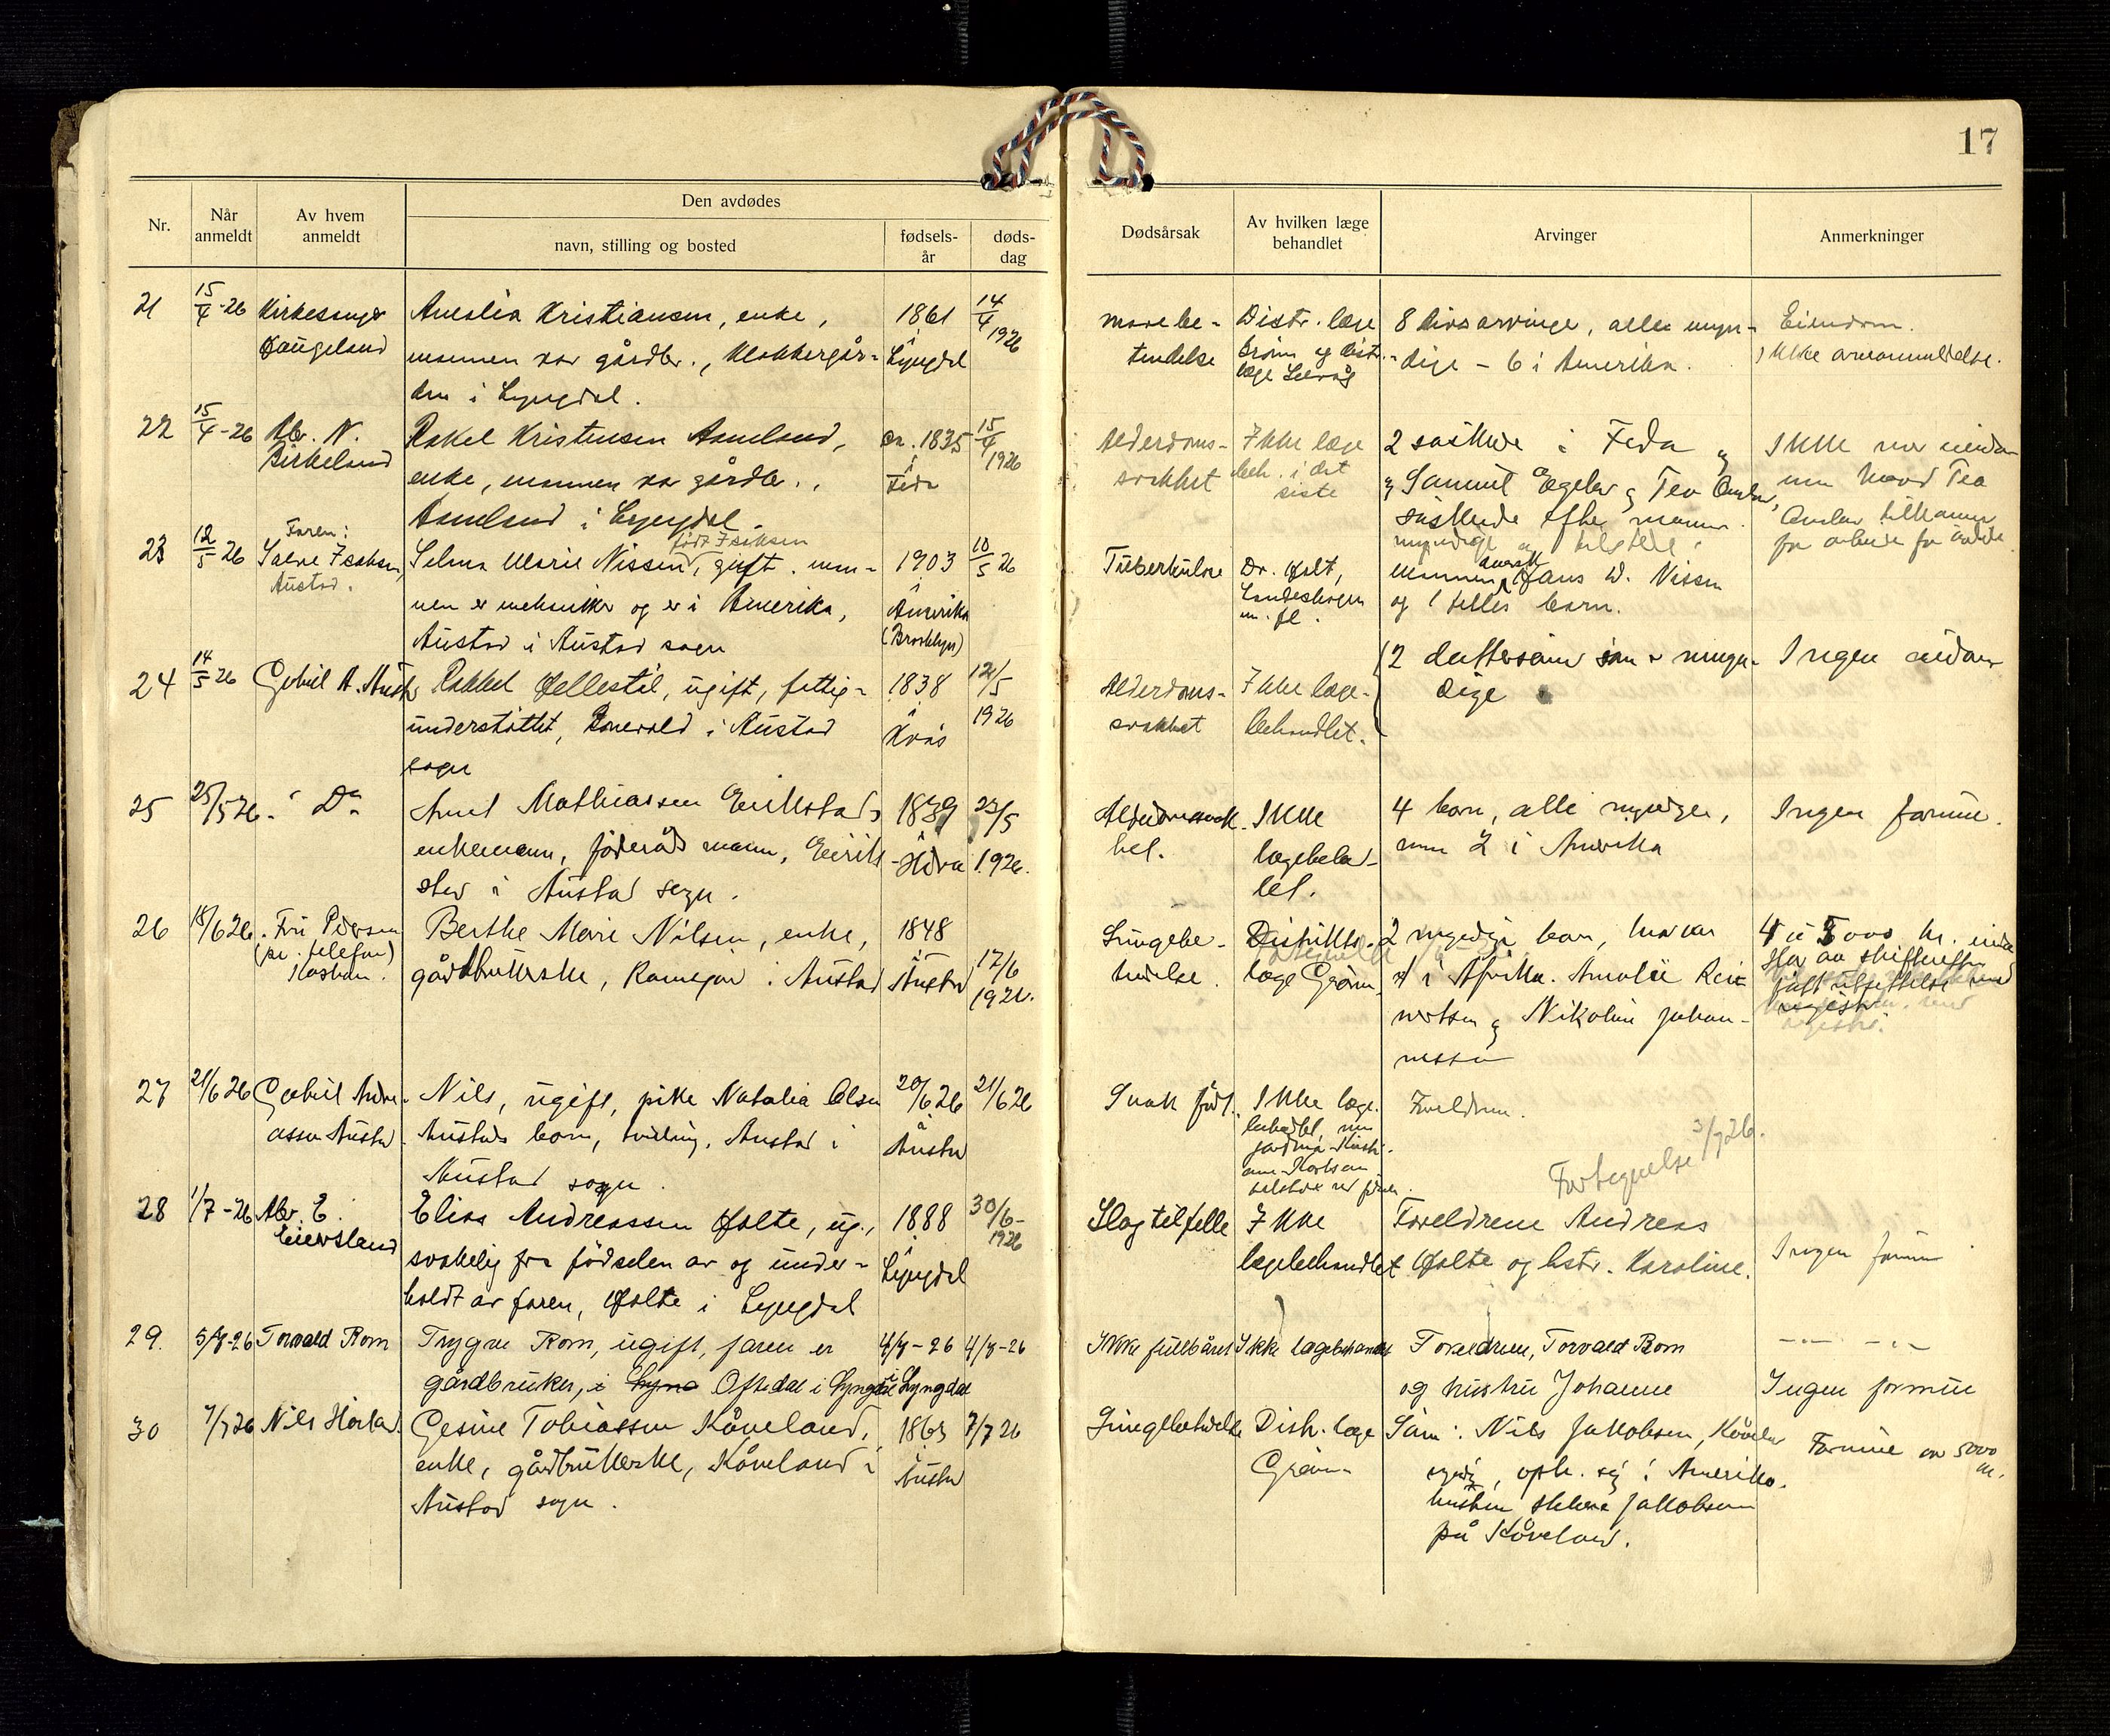 17
Nr.
Når anmeldt
Av hvem anmeldt
Den avdødes
navn, stilling og bosted
fødsels-år
døds-dag
Dødsårsak
Av hvilken læge behandlet
Arvinger
Anmerkninger
21
15/4-26
Kirkesanger
Haugeland
Amalia Kristiansen, enke,
mannen var gårdbr., Klokkergår-
den i Lyngdal.
1861
i
Lyngdal
14/4
1926
Mavebe-
tendelse
Distr. læge
Grøm og distr.-
læge
8 livsarvinger, alle myn-
dige - 6 i Amerika.
Eiendom.
Ikke
22
15/4-26
Abr. N.
Birkeland
Rakel Kristensen Aamland,
enke, mannen var gårdbr.,
Aamland i Lyngdal.
ca. 1835
i
Feda
15/4
1926
Alderdoms-
svakhet
Ikke læge
beh. i det
siste
2 søskende i Feda og
Samuel Egeland og Tea
søskende efter mannen.
myndige og tilstede i
Ikke
hvad Tea
tilkommer
for arbeide for avdøde
23
12/5 26
Faren:
Salve Isaksen,
Austad.
født Isaksen
Selma Marie Nissen, gift. man-
nen er mekaniker og er i Amerika,
Austad i Austad sogn
1903
i
Amerika
(Brooklyn)
10/5 26
Tuberkulose
Dr. Holt,
m. fl.
Mannen, Hans W. Nissen
og 1 felles barn.
24
14/5 26
Gabriel A. Austad
Rakkel Hellestöl, ugift, fattig-
understøttet, i Austad
sogn
1838
i
Kvås
12/5
1926
Alderdoms-
svakhet
Ikke læge-
behandlet.
2 døttersønner som er myn-
dige
Ingen eiendom
25
25/5 26.
Do
Arnt Mathiassen Eirikstad,
enkemann, føderåds mann, Eirik-
stad i Austad sogn.
1839
i
Hidra
23/5
1926.
Alderdomssvak-
het.
Ikke
lægebehand-
let.
4 barn, alle myndige,
2 i Amerika
Ingen formue.
26
18/6 26.
Fru Pedersen
(pr. telefon)
Berthe Marie Nilsen, enke,
gårdbrukerske, i Austad
1848
i
Austad
17/6
1926.
Lungebe-
tendelse.
Distrikts-
læge Grøm.
2 myndige barn, hvorav
1 i Afrika. Amalie Rei-
nertsen og Nikoline Johan-
nessen
4 à 5000 kr.
27
21/6 26
Gabriel Andre-
assen Austad.
Nils, ugift, pike Natalia Olsen
Austads barn, tvilling, Austad i
Austad sogn.
20/6 26
i
Austad
21/6 26
Svak født.
Ikke læge-
behandlet, men
jordmor Kristi-
ane Karlsen
tilstede ved fødselen.
Foreldrene.
Fortegnelse 3/7 26.
28
1/7-26
Abr. E.
Eiersland
Elias Andreassen Holte, ug.,
svakelig fra fødselen av og under-
holdt av faren, Holte i Lyngdal
1888
i
Lyngdal
30/6-
1926
Slagtilfelle
Ikke
lægebehandlet
Foreldrene Andreas
Holte og hstr. Karoline.
Ingen formue
29.
5/7-26
Torvald Rom
Trygve Rom, ugift, faren er
gårdbruker, i Lyng Oftedal i Lyngdal
4/7-26
i Lyngdal
4/7-26
Ikke fullbåret
Ikke lægebehandlet
Foreldrene, Torvald Rom
og hustru Johanne
Ingen formue
30
7/7 26
Nils
Gesine Tobiassen Kåveland,
enke, gårdbrukerske, Kåveland i
Austad sogn.
1863
i
Austad
7/7 26
Lungebetendelse
Distr. læge
Grøm
Sønn: Nils Jakobsen, Kåveland
myndig, oph. sig i Amerika.
Jakobsen
på Kåveland.
Formue ca 5000
kr.